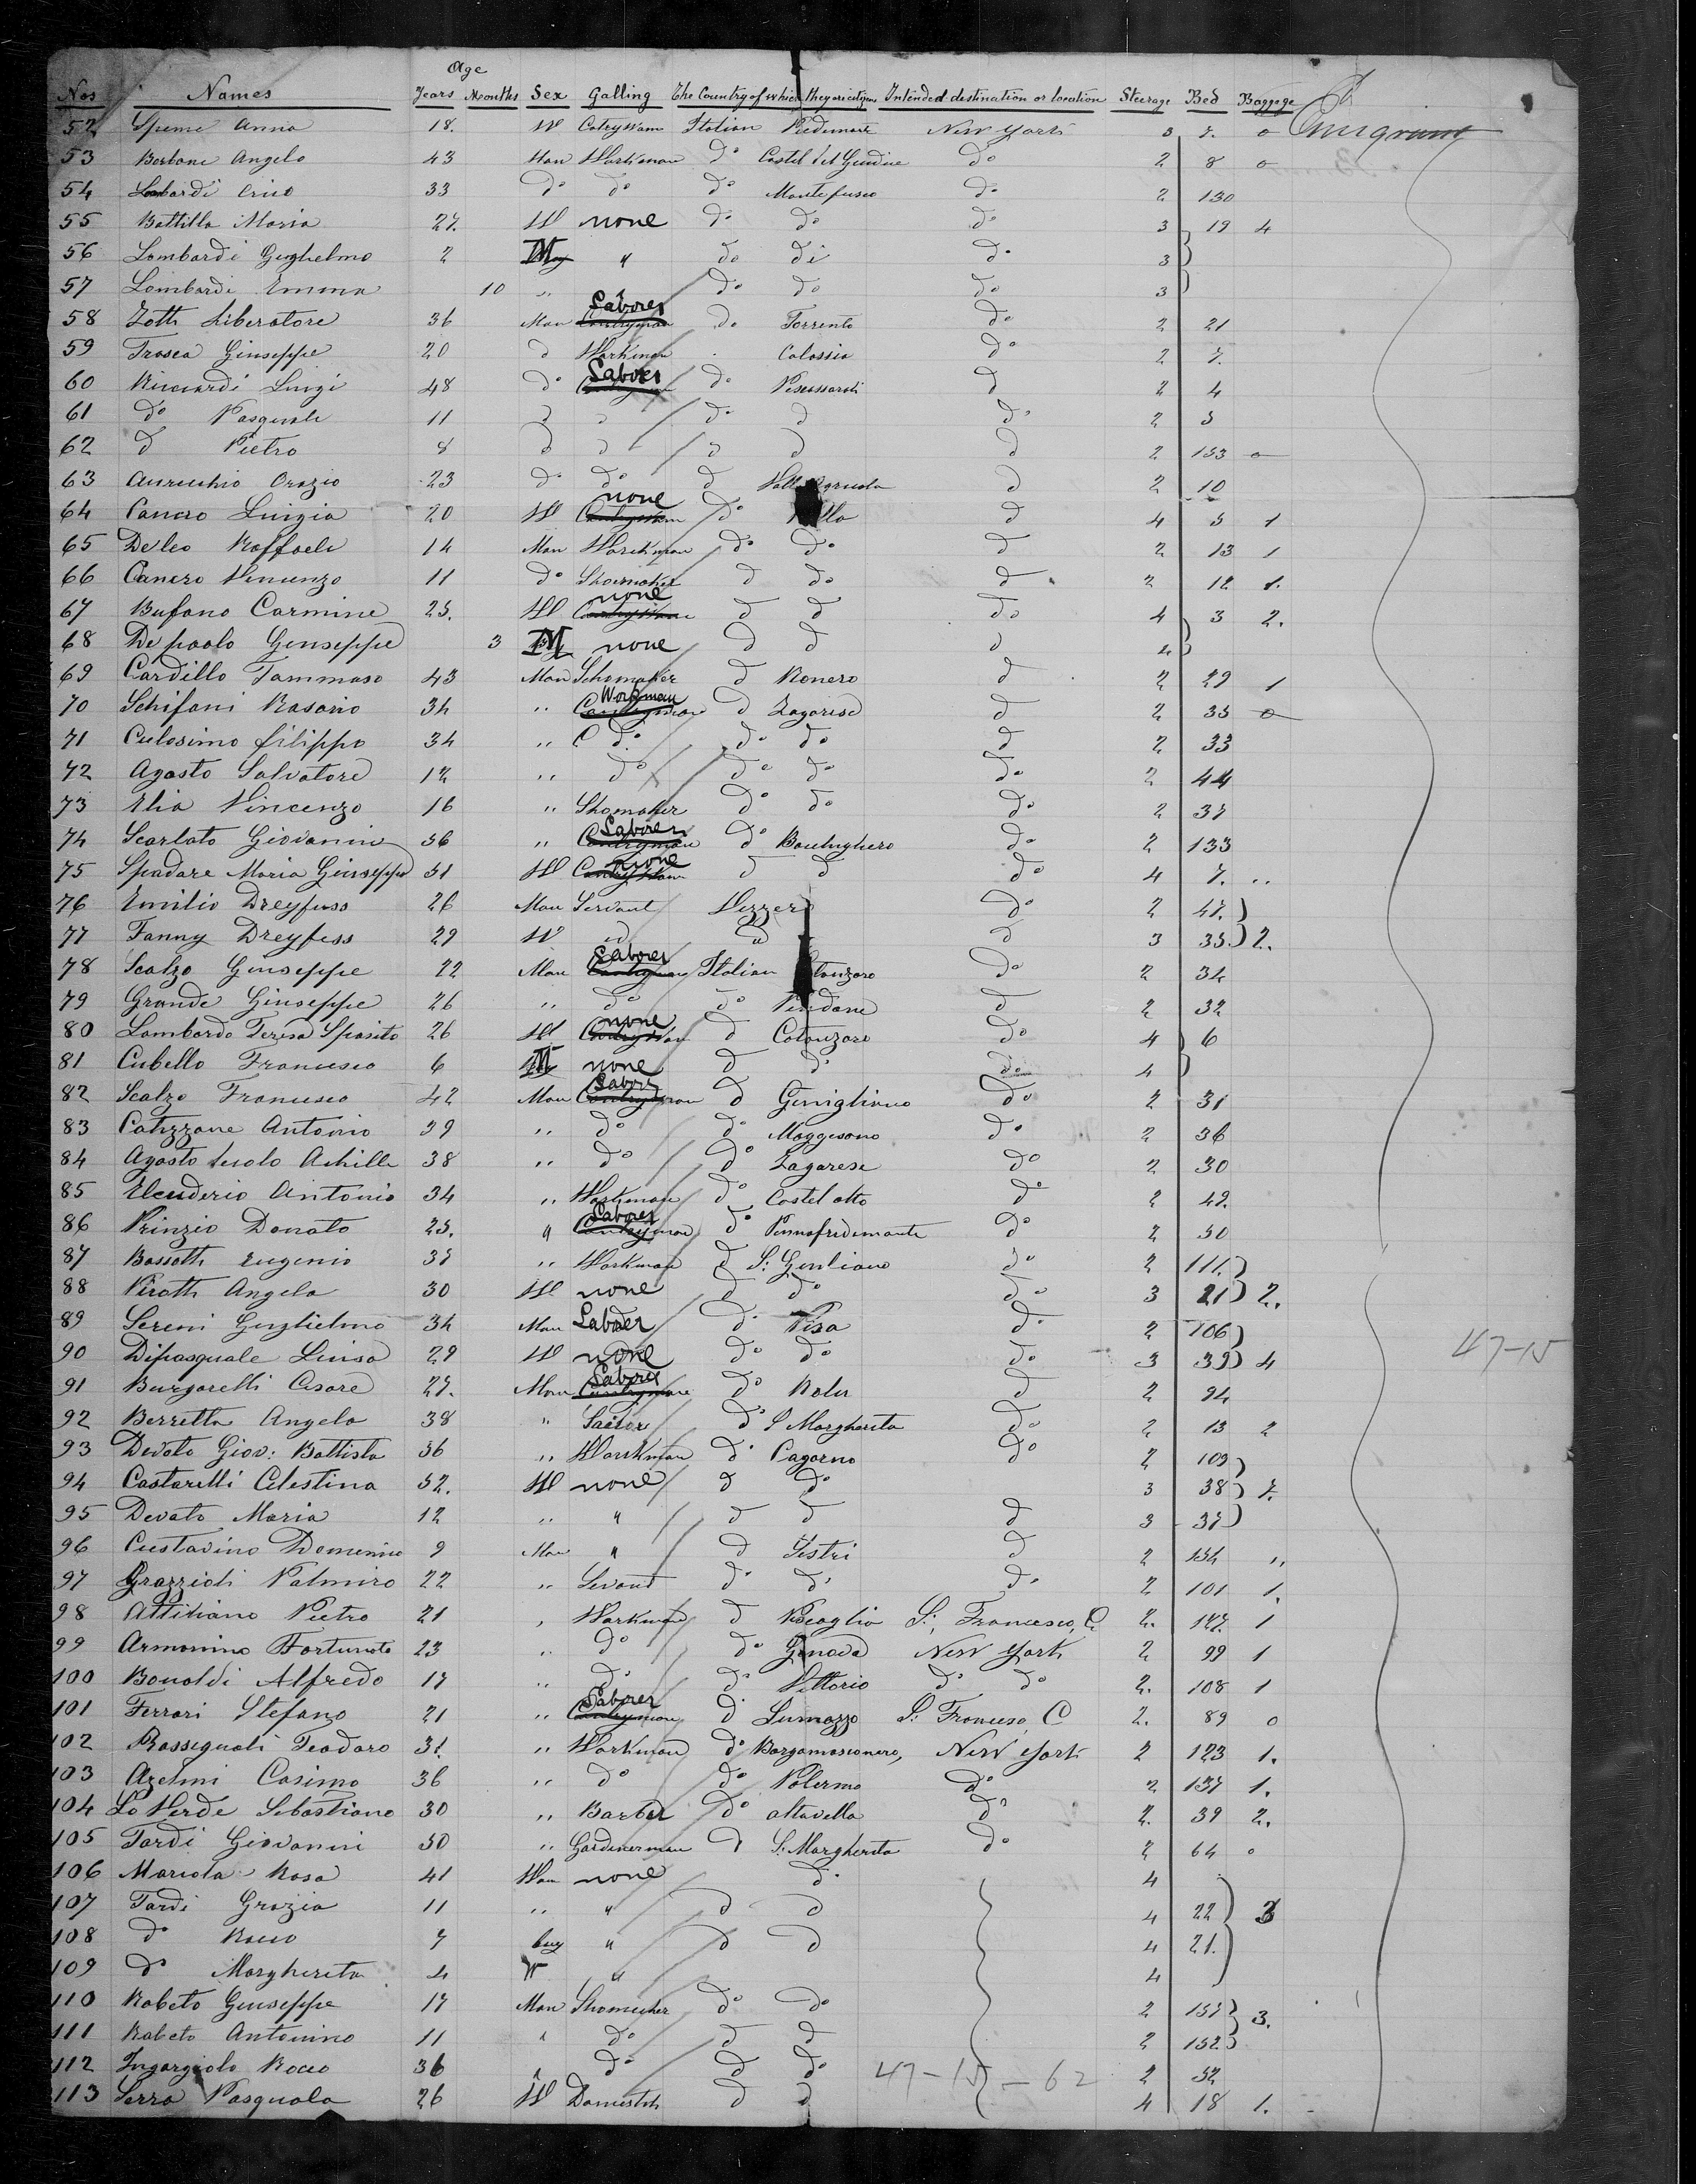 Age
Nos Names Years Months Sex Calling The Country of which they are citizens Intended destination or location Steerage Bed Baggage
Emigrant
52 Anna 18. W Italian New York 3 7. o
53 Borbone Angelo 43 Man Workman do Castel del Giudice do 2 8 o
54 Lombardi 33 do do do Montefusco do 2 130
55 Battilla Maria 27. W none do do do 3 19 4
56 Lombardi Guglielmo 2 M " do di do 3
57 Lombardi Emma 10 " do do do 3
58 Zotti Liberatore 36 Man Laborer do Torrente do 2 21
59 Trosca Giuseppe 20 d Workman Colossia do 2 7.
60 Ricciardi Luigi 48 do Laborer do d 2 4
61 do Pasquale 11 d d do d do 2 5
62 d Pietro 8 d d d d d 2 153 o
63 Aurecchio Orazio 23 do do d d 2 10
64 Canero Luigia 20 W none do d 4 5 1
65 Deleo Raffaele 14 Man Workman do do d 2 13 1
66 Canero Vincenzo 11 do Shoemaker d do d 2 12 1.
67 Bufano Carmine 25. W none d d do 4 3 2.
68 De paolo Genseppe 3 M none d d d 4
69 Cardillo Tammaso 43 Man Schomaker d Ronero d 2 29 1
70 Schifani Rasario 34 " Workman d Zagarise d 2 35 o
71 Culosimo filippo 34 " C do do do d 2 33
72 Agosto Salvatore 12 " do do do do 2 44
73 Elia Vincenzo 16 " Shomaker do do do 2 37
74 Scarlato Giovanni 36 " Laborer do Bocchighero do 2 133
75 Spadare Maria Giuseppe 31 W none d d do 4 7. "
76 Emilio Dreyfuss 26 Man Servant do 2 47.
77 Fanny Dreyfuss 29 W d d d 3 35. 2.
78 Scalzo Giuseppe 22 Man Laborer Italian do 2 34
79 Grande Giuseppe 26 " do do d 2 32
80 Lombardo Teresa Sposito 26 W none d Cotonzaro do 4 6
81 Cubello Francesco 6 M none d do do 4
82 Scalzo Francesco 42 Man Labor d Gimigliano do 2 31
83 Catizzone Antonio 39 " do do Maggesano do 2 36
84 Agosto Achille 38 " do do Zagarese do 2 30
85 Eleuderio Antonio 34 " Workman do Castel otto do 2 42.
86 Prinzio Donato 25. " Laborer do Pennafredemonte do 2 50
87 Bossotti Eugenio 37 " Workman d S: Genliano do 2 111.
88 Pirotti Angela 30 W none d do do 3 21 2.
89 Sereni Guglielmo 34 Man Laborer d. Pisa d. 2 106
90 Dipasquale Luisa 29 W none do do do 3 39 4
91 Burgarelli Cesare 27. Man Laborer do d 2 94
92 Berretta Angelo 38 " do S Margherita do 2 13 2
93 Devoto Giov: Battista 36 " Workman do Cagorno do 2 109
94 Castarelli Celestina 52. W none d do 3 38 7.
95 Devoto Maria 12 " " d d d 3 37
96 Custavino Domenico 9 Man " d Sestri d 2 134 "
97 Grazzioli Palmiro 22 " d. d. d. 2 101 1.
98 Attiliano Pietro 21 " Workman d S: Francesco, C 2. 127. 1
99 Armonino Fortunato 23 " do do Genova New York 2 99 1
100 Bonoldi Alfredo 17 " do do Vittorio do do 2. 108 1
101 Ferrari Stefano 21 " Laborer d Lumazzo S: Francesco, C 2. 89 o
102 Rossignoli Teodoro 31. " Workman do Borgomasionero, New York 2 123 1.
103 Azelmi Cosimo 36 " do do Palermo do 2 137 1.
104 Lo Verde Sebastiano 30 " Barber do altavella do 2. 39 2.
105 Tardi Giovanni 50 " Gardinerman d S. Margherita do 2 64 o
106 Mariola Rosa 41 none d. 4
107 Tardi Grazia 11 " " d d 4 22 3
108 do Rocco 7 boy " d d 4 21.
109 do Margherita 4 W " 4
110 Robeto Giuseppe 17 Man Shomecher do do 2 3.
111 Robeto Antonino 11 " do d d 2 152
112 Ingargiolo Rocco 36 " do d do 2 52
113 Serra Pasquala 26 W Domestch d d 4 18 1.
47-15
47-15-62